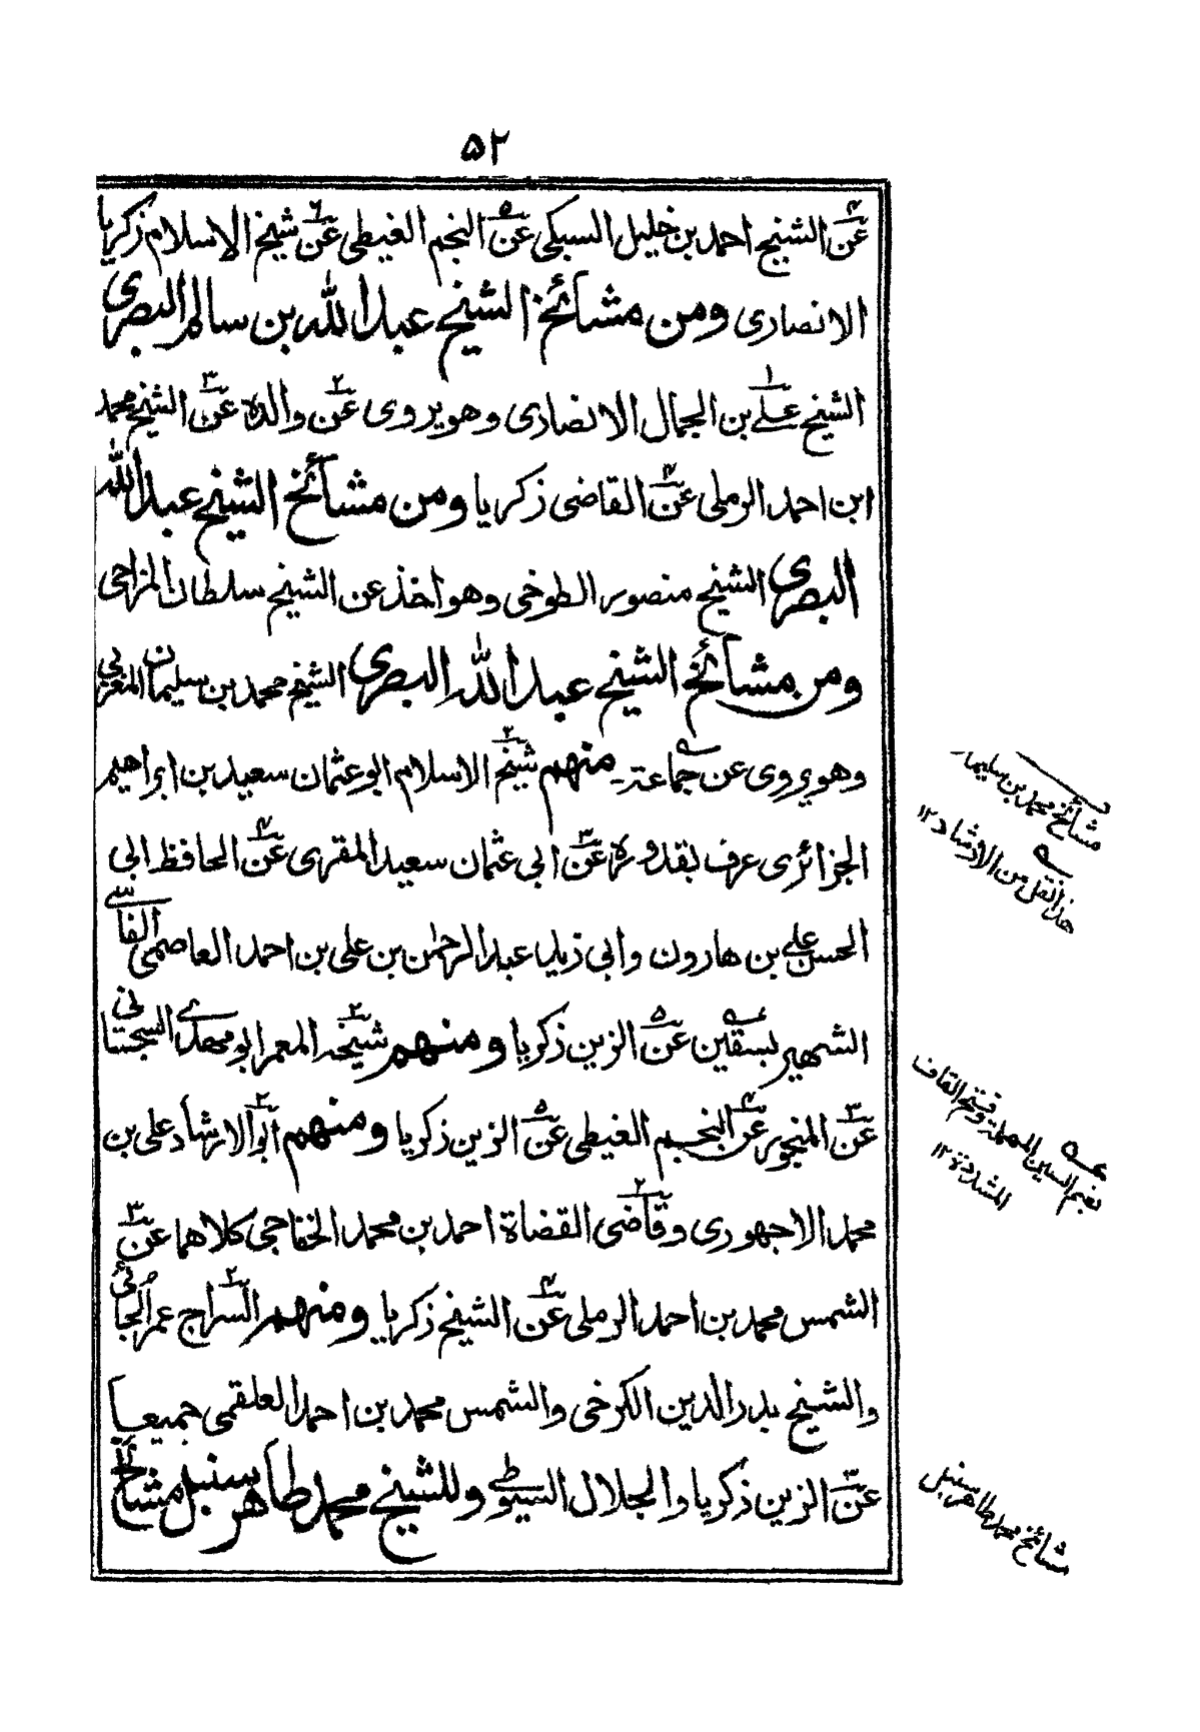 ۵۲
عن۴ الشيخ احمد بن خليل السبكى عن۵ النجم الغيطى عن۶ شيخ الاسلام زكريا
الانصارى ومن مشائخ الشيخ عبد الله بن سالم البصرى
الشيخ على۱ بن الجمال الانصارى وهو يروى عن۲ والده عن۳ الشيخ محمد
ابن احمد الرملى عن۴ القاضى زكريا ومن مشائخ الشيخ عبد الله
البصرى الشيخ منصور الطوخى وهو اخذ عن الشيخ سلطان المزاحى
ومن مشائخ الشيخ عبد الله البصرى الشيخ محمد بن سليمان المغربى
وهو يروى عن جماعة منهم شيخ۲ الاسلام ابو عثمان سعيد بن ابراهيم
الجزائرى عرف بقدوره عن۳ ابى عثمان سعيد المقرى عن۴ الحافظ ابى
الحسن على بن هارون وابى زيد عبد الرحمن بن على بن احمد العاصمى الفاسى
الشهير بسقين عن۵ الزين زكريا ومنهم شيخه۲ المعمر ابو مهدى السجستانى
عن۳ المنجور عن۴ النجم الغيطى عن۵ الزين زكريا ومنهم ابو۲ الارشاد على بن
محمد الاجهورى وقاضى۲ القضاة احمد بن محمد الخفاجى كلاهما عن۳
الشمس محمد بن احمد الرملى عن۴ الشيخ زكريا ومنهم السراج۲ عمر الجائى
والشيخ بدر الدين الكرخى والشمس محمد بن احمد العلقمى جميعا
عن۳ الزين زكريا والجلال السيوطى وللشيخ محمد طاهر سنبل مشائخ
مشائخ محمد بن سليمان
هذا نقل من الارشاد ۱۲
بضم السين المهملة وفتح القاف
المشددة ۱۲
مشائخ محمد طاهر سنبل